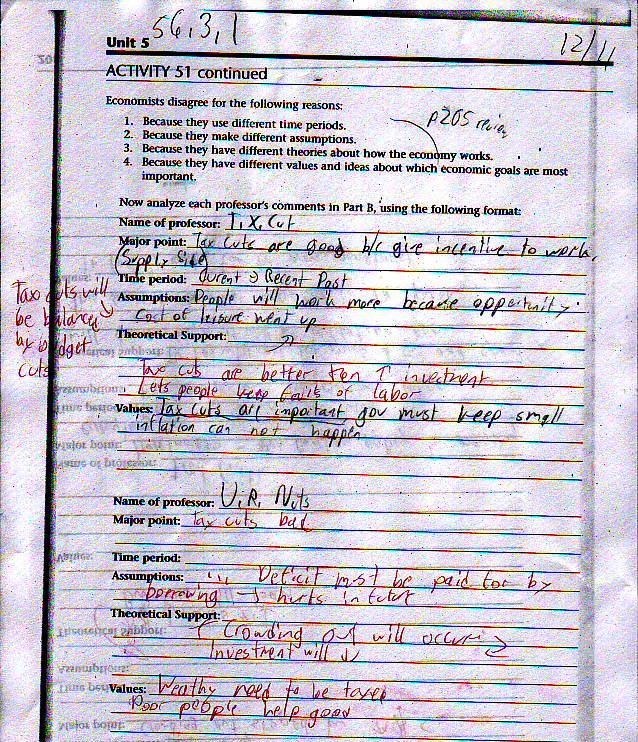 56,3,1
12/11
Unit 5
ACTIVITY 51 continued
Economists disagree for the following reasons:
p205 review
1. Because they use different time periods.
2. Because they make different assumptions.
3. Because they have different theories about how the economy works.
4. Because they have different values and ideas about which economic goals are most
important.
Now analyze each professor's comments in Part B, using the following format:
Name of professor: T, X, Cut
Major point: Tax cuts are good b/c give incentive to work.
(Supply Side)
Time period: Curent → Recent Past
Assumptions: People will work more because opportunity
Cost of leisure went up
Tax cuts will
be balanced
by budget
cuts
Theoretical Support:
Tax cuts are better ↑ investment
Lets people keep fruits of labor
Values: Tax cuts are important gov must keep small
inflation can not happen
Name of professor: U, R, Nuts
Major point: Tax cuts bad
Time period:
Assumptions: Deficit must be paid for by
borrowing → hurts in futur
Theoretical Support:
Crowding out will occur
Investment will ↓
Values: Wealthy need to be taxed
Poor people help good